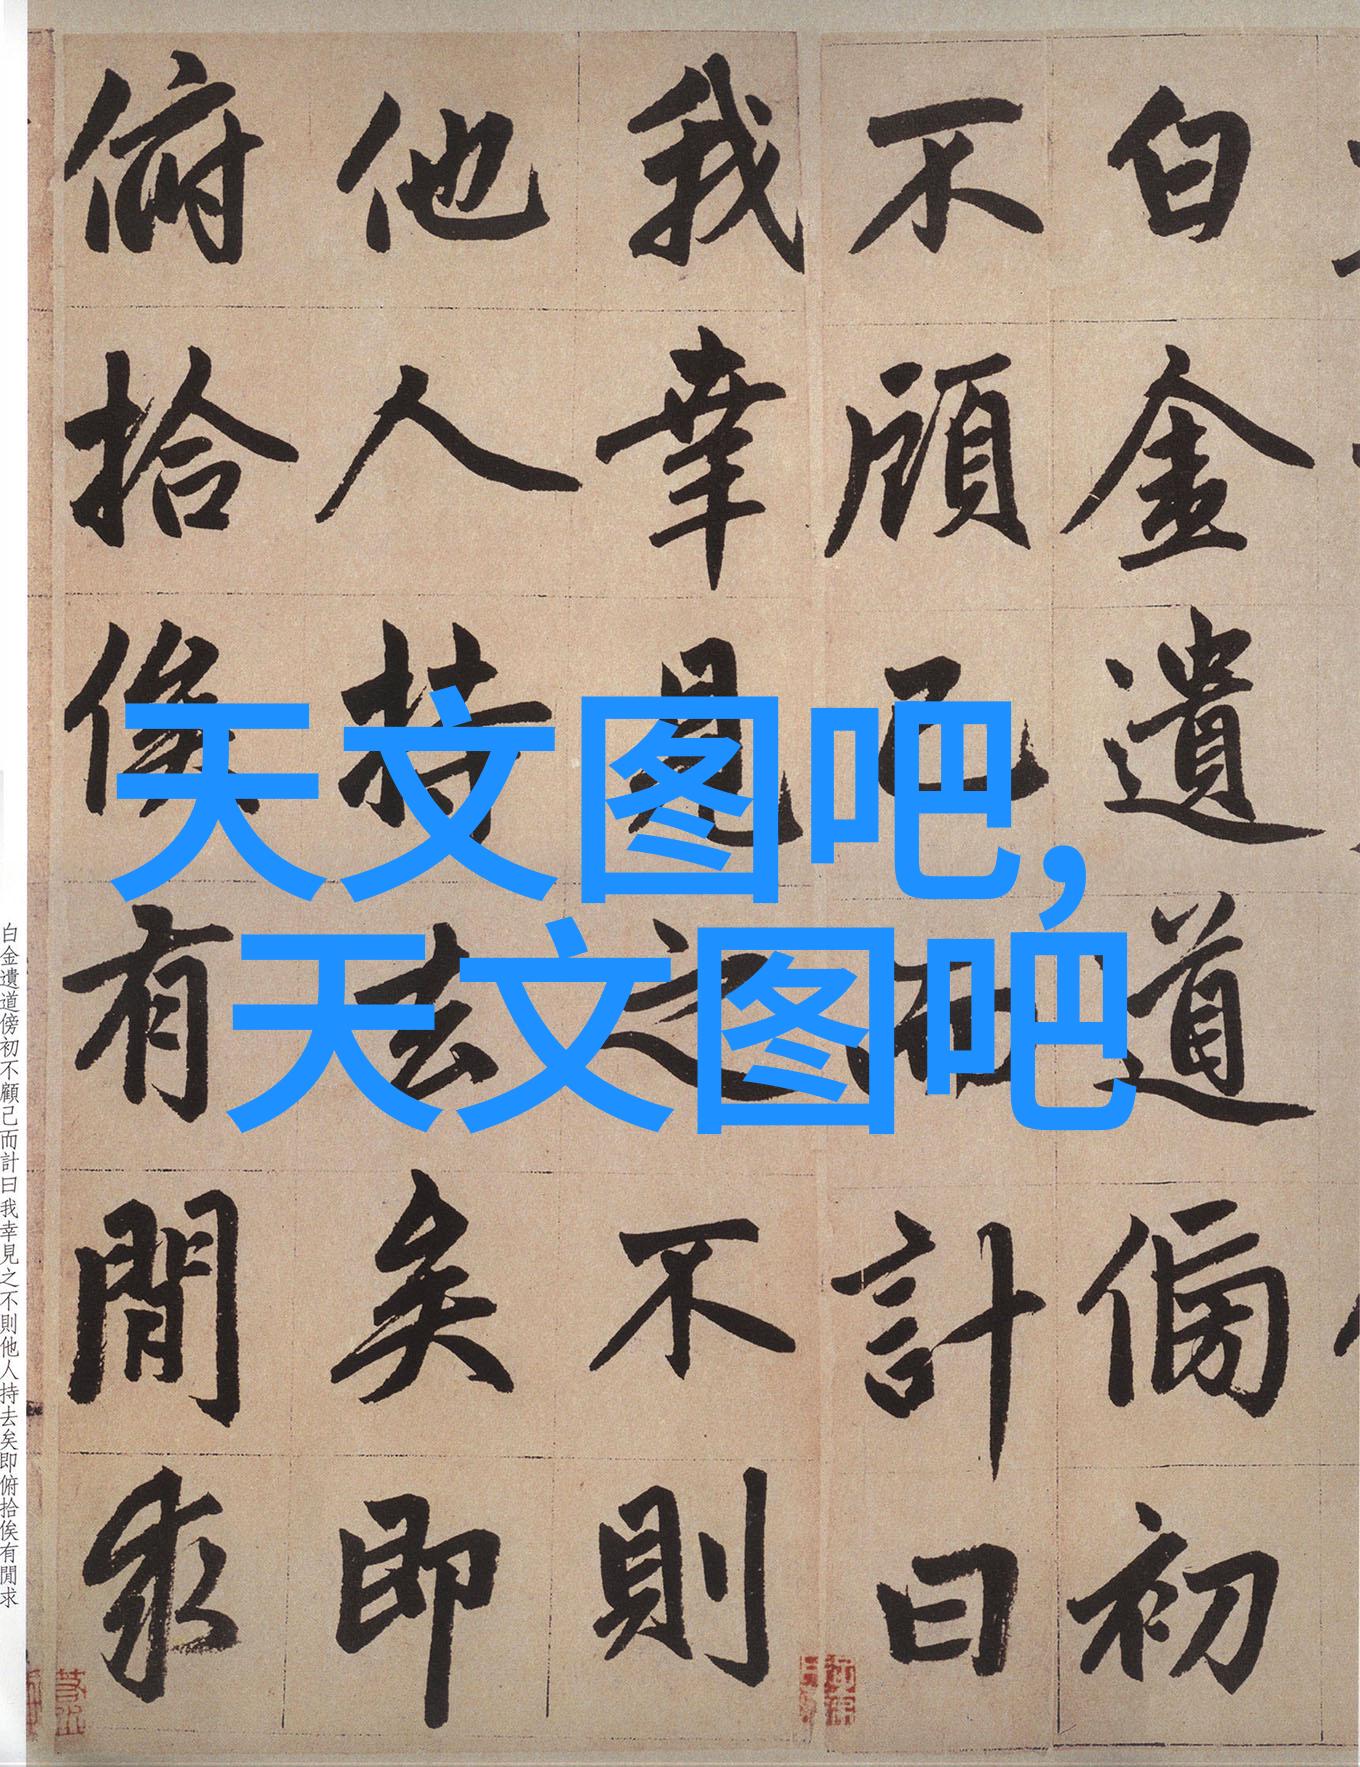 白金遺道傍初
不顧己而計曰
我幸見之不則
他人持去矣即
俯拾俟有閒求
天文图吧,
天文图吧
白金遺道傍初不顧己而計曰我幸見之不則他人持去矣即俯拾俟有閒求